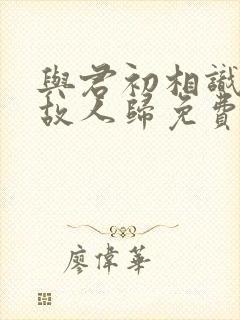 與君初相識
故人歸免費
廖偉華